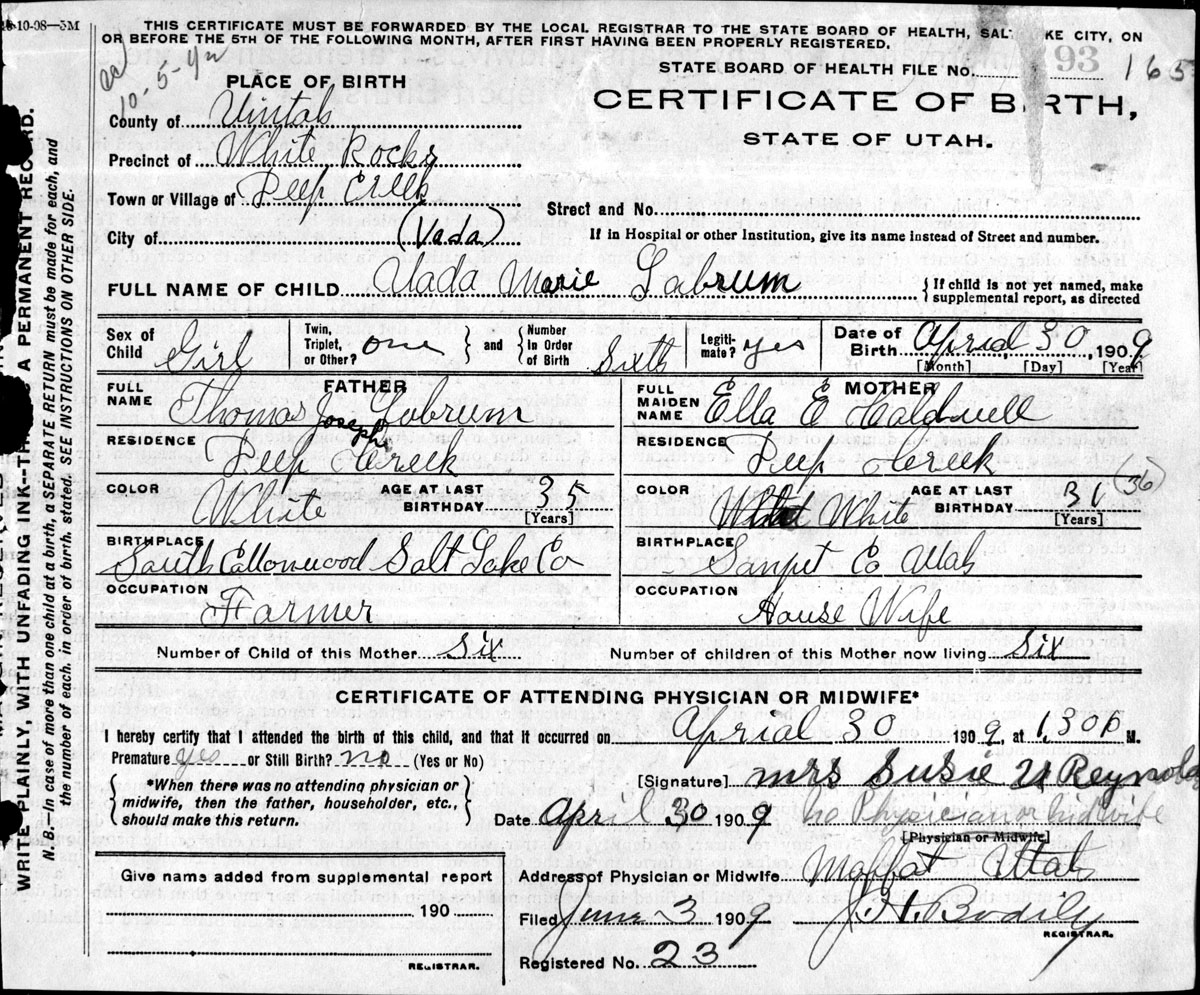 10-98—5M
THIS CERTIFICATE MUST BE FORWARDED BY THE LOCAL REGISTRAR TO THE STATE BOARD OF HEALTH, SAL KE CITY, ON
OR BEFORE THE 5TH OF THE FOLLOWING MONTH, AFTER FIRST HAVING BEEN PROPERLY REGISTERED.
10-5-42
STATE BOARD OF HEALTH FILE No. 93 165
PLACE OF BIRTH
CERTIFICATE OF BIRTH,
STATE OF UTAH.
County of Uintah
Precinct of White Rocks
Town or Village of Deep Creek
Street and No.
City of (Vada)
If in Hospital or other Institution, give its name instead of Street and number.
FULL NAME OF CHILD Vada Marie Labrum
If child is not yet named, make
supplemental report, as directed
Sex of Child Girl
Twin, Triplet, or Other? one
and Number In Order of Birth Sixth
Legiti-mate? yes
Date of Birth Aprial 30, 1909
[Month] [Day] [Year]
FATHER
FULL NAME Thomas Joseph Labrum
RESIDENCE Deep Creek
COLOR White
AGE AT LAST BIRTHDAY 35
[Years]
BIRTHPLACE South Cottonwood Salt Lake Co
OCCUPATION Farmer
MOTHER
FULL MAIDEN NAME Ella E Caldwell
RESIDENCE Deep Creek
COLOR White
AGE AT LAST BIRTHDAY 31 (36)
[Years]
BIRTHPLACE Sanpet Co Utah
OCCUPATION House Wife
Number of Child of this Mother Six
Number of children of this Mother now living Six
CERTIFICATE OF ATTENDING PHYSICIAN OR MIDWIFE*
I hereby certify that I attended the birth of this child, and that it occurred on Aprial 30 1909, at 1,30 P M.
Premature yes or Still Birth? no (Yes or No)
*When there was no attending physician or
midwife, then the father, householder, etc.,
should make this return.
[Signature] mrs Susie Reynolds
Date April 30 1909 no Physician or midwife
[Physician or Midwife]
Address of Physician or Midwife Moffat Utah
Filed June 3 1909 J. H. Bodily
REGISTRAR.
Registered No. 23
Give name added from supplemental report
190
REGISTRAR.
WRITE PLAINLY, WITH UNFADING INK—TH A PERMANENT RECORD.
N. B.—In case of more than one child at a birth, a SEPARATE RETURN must be made for each, and
the number of each, in order of birth, stated. SEE INSTRUCTIONS ON OTHER SIDE.